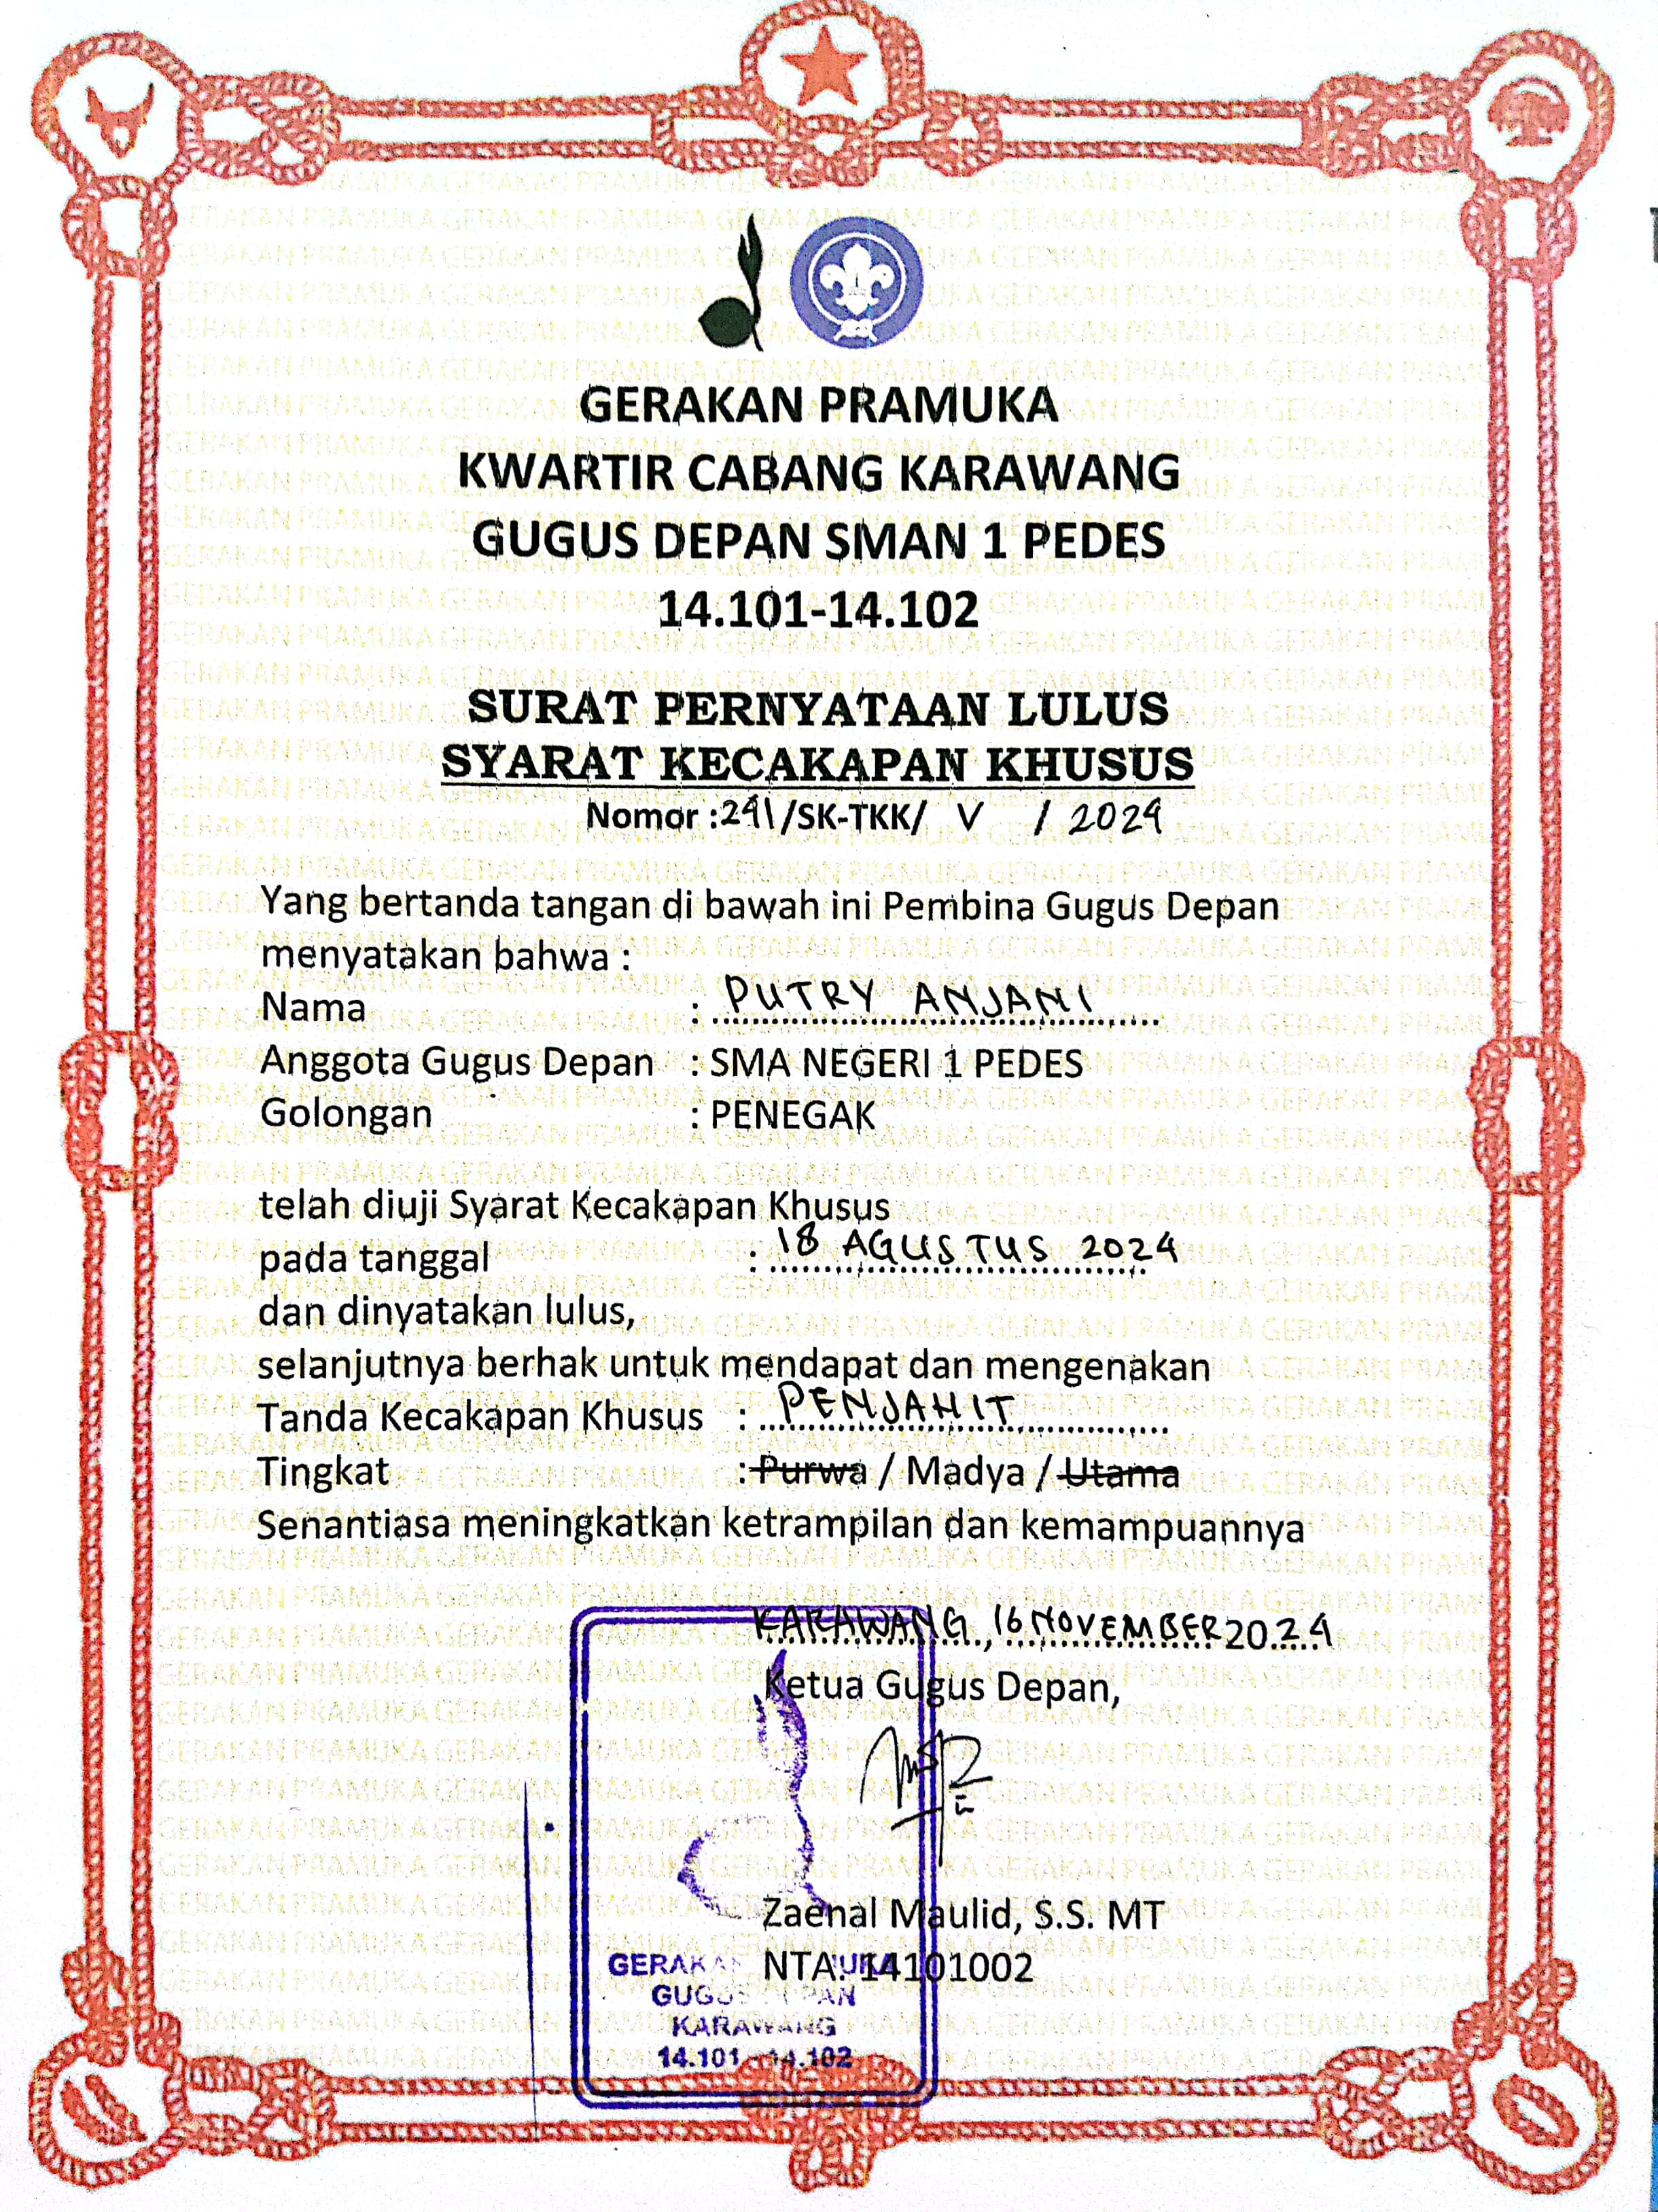 GERAKAN PRAMUKA
KWARTIR CABANG KARAWANG
GUGUS DEPAN SMAN 1 PEDES
14.101-14.102
SURAT PERNYATAAN LULUS
SYARAT KECAKAPAN KHUSUS
Nomor : 241/SK-TKK/ V / 2024
Yang bertanda tangan di bawah ini Pembina Gugus Depan
menyatakan bahwa :
Nama : PUTRY ANJANI
Anggota Gugus Depan : SMA NEGERI 1 PEDES
Golongan : PENEGAK
telah diuji Syarat Kecakapan Khusus
pada tanggal : 18 AGUSTUS 2024
dan dinyatakan lulus,
selanjutnya berhak untuk mendapat dan mengenakan
Tanda Kecakapan Khusus : PENJAHIT
Tingkat : Purwa / Madya / Utama
Senantiasa meningkatkan ketrampilan dan kemampuannya
KARAWANG, 16 NOVEMBER 2024
Ketua Gugus Depan,
Zaenal Maulid, S.S. MT
NTA. 14101002
GUGUS DEPAN
KARAWANG
14.101 - 14.102